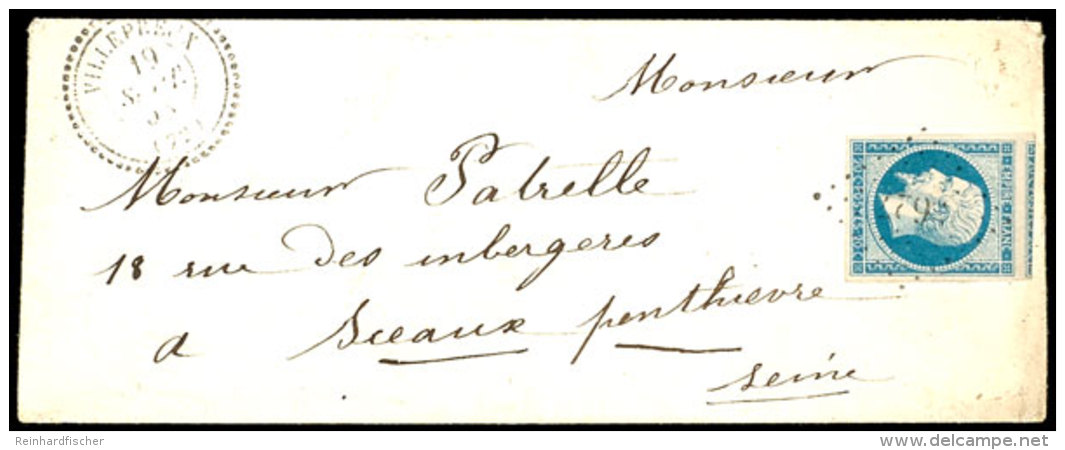 VILLEPREUX
19
(72)
Monsieur
Monsieur Patrelle
18 rue des imbergeres
a Sceaux penthievre
seine
EMPIRE FRANC
Reinhardfischer
delcampe.net